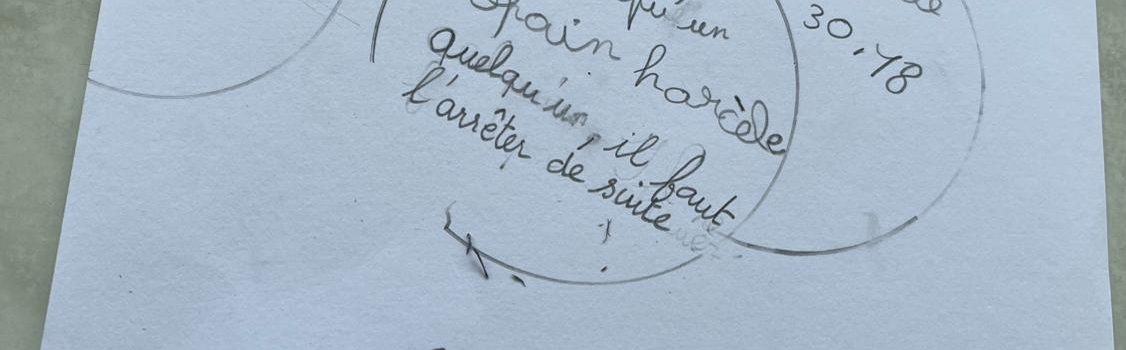 qu'un
30.48
pain harcèle
quelqu'un, il faut
l'arrêter de suite